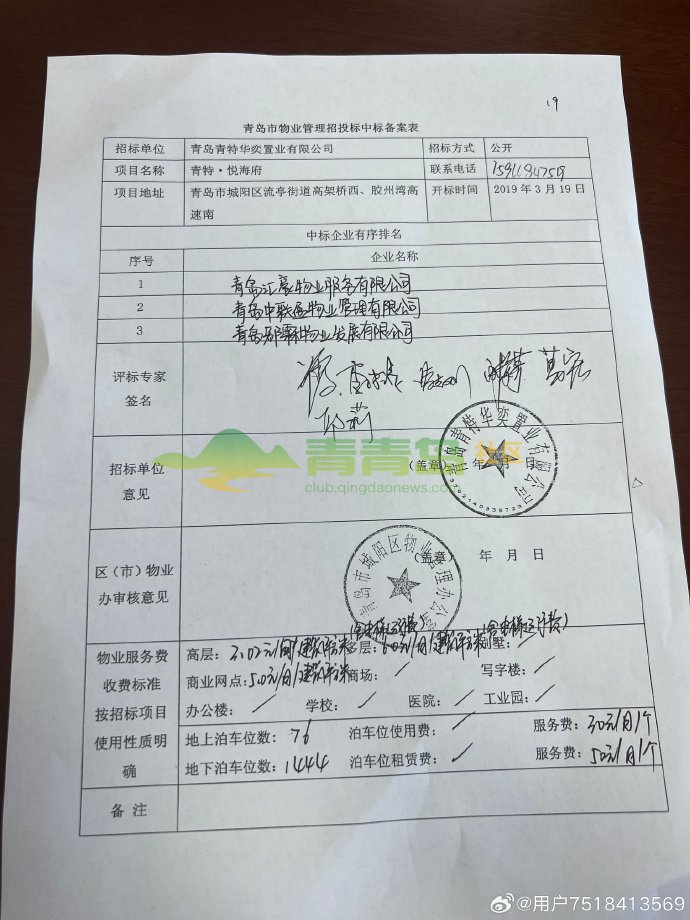 19
青岛市物业管理招投标中标备案表
招标单位 青岛青特华奕置业有限公司 招标方式 公开
项目名称 青特·悦海府 联系电话
项目地址 青岛市城阳区流亭街道高架桥西、胶州湾高速南 开标时间 2019年3月19日
中标企业有序排名
序号 企业名称
1 青岛汇豪物业服务有限公司
2 青岛中联通物业管理有限公司
3 青岛郡霖物业发展有限公司
评标专家
签名
招标单位
意见
(盖章) 年
青岛青特华奕置业有限公司
青青华 社区
club.qingdaonews.com
区(市)物业
办审核意见
(盖章) 年 月 日
青岛市城阳区物业管理办公室
(含电梯运行费) (含电梯运行费)
物业服务费
收费标准
按招标项目
使用性质明
确
高层:3.02元/月/建筑平米 多层: 元/月/建筑平米 别墅:/
商业网点:5.0元/月/建筑平米 商场:/ 写字楼:/
办公楼:/ 学校:/ 医院:/ 工业园:/
地上泊车位数:76 泊车位使用费:/ 服务费:30元/月/个
地下泊车位数:1444 泊车位租赁费:/ 服务费:50元/月/个
备 注
@用户7518413569